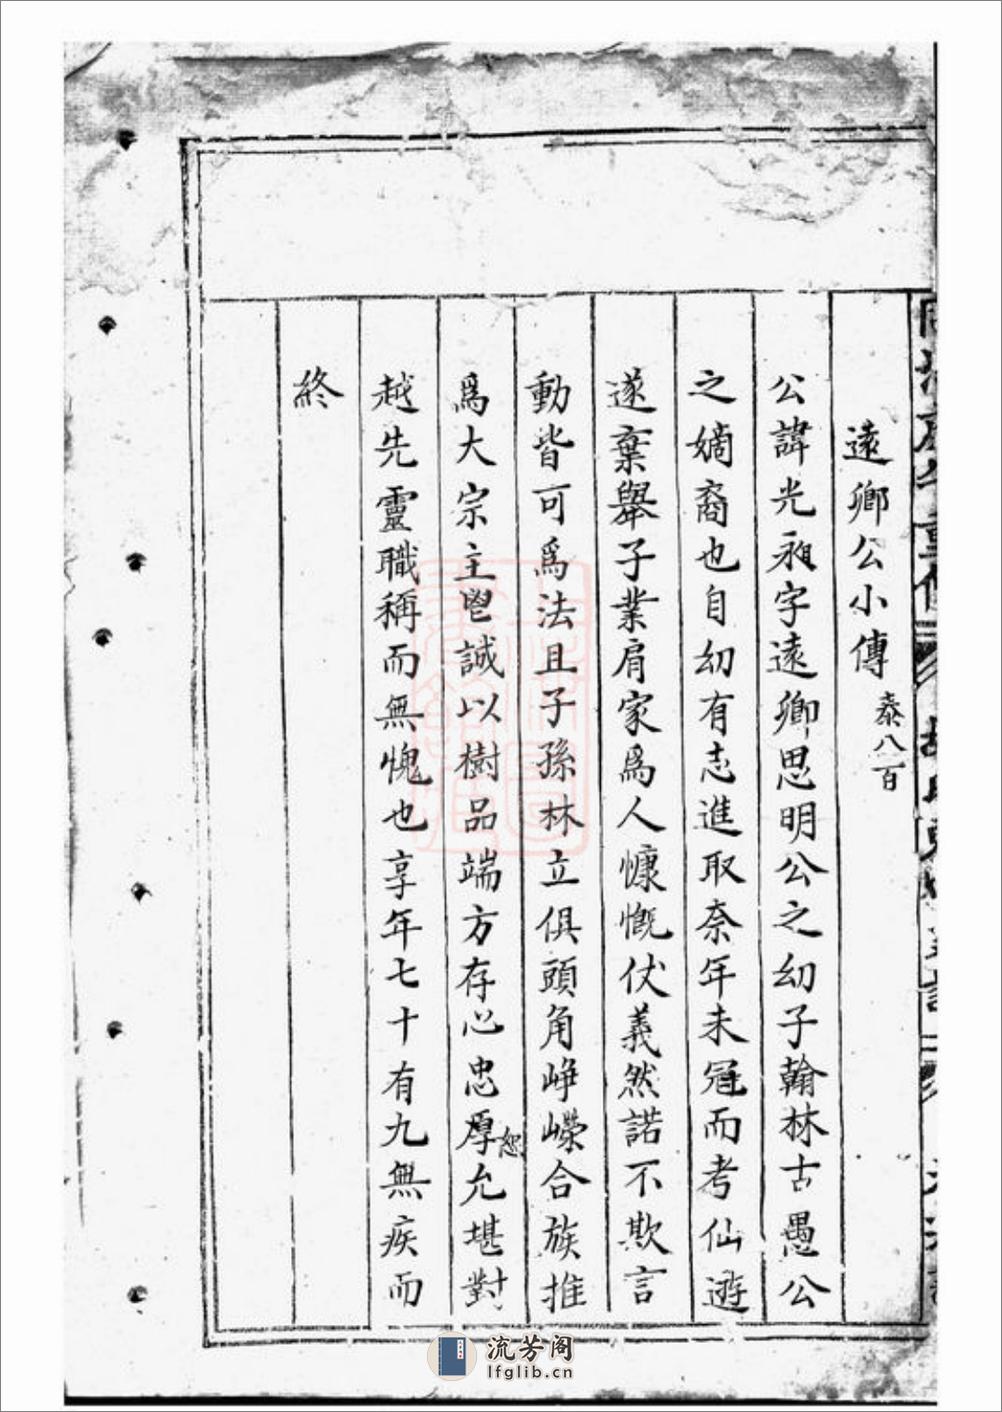 遠卿公小傳 泰八百
公諱光昶字遠卿思明公之幼子翰林古愚公
之嫡裔也自幼有志進取奈年未冠而考仙遊
遂棄舉子業肩家為人慷慨伏義然諾不欺言
動皆可為法且子孫林立俱頭角崢嶸合族推
為大宗主鬯誠以樹品端方存心忠厚恕允堪對
越先靈職稱而無愧也享年七十有九無疾而
終
流芳阁
lfglib.cn